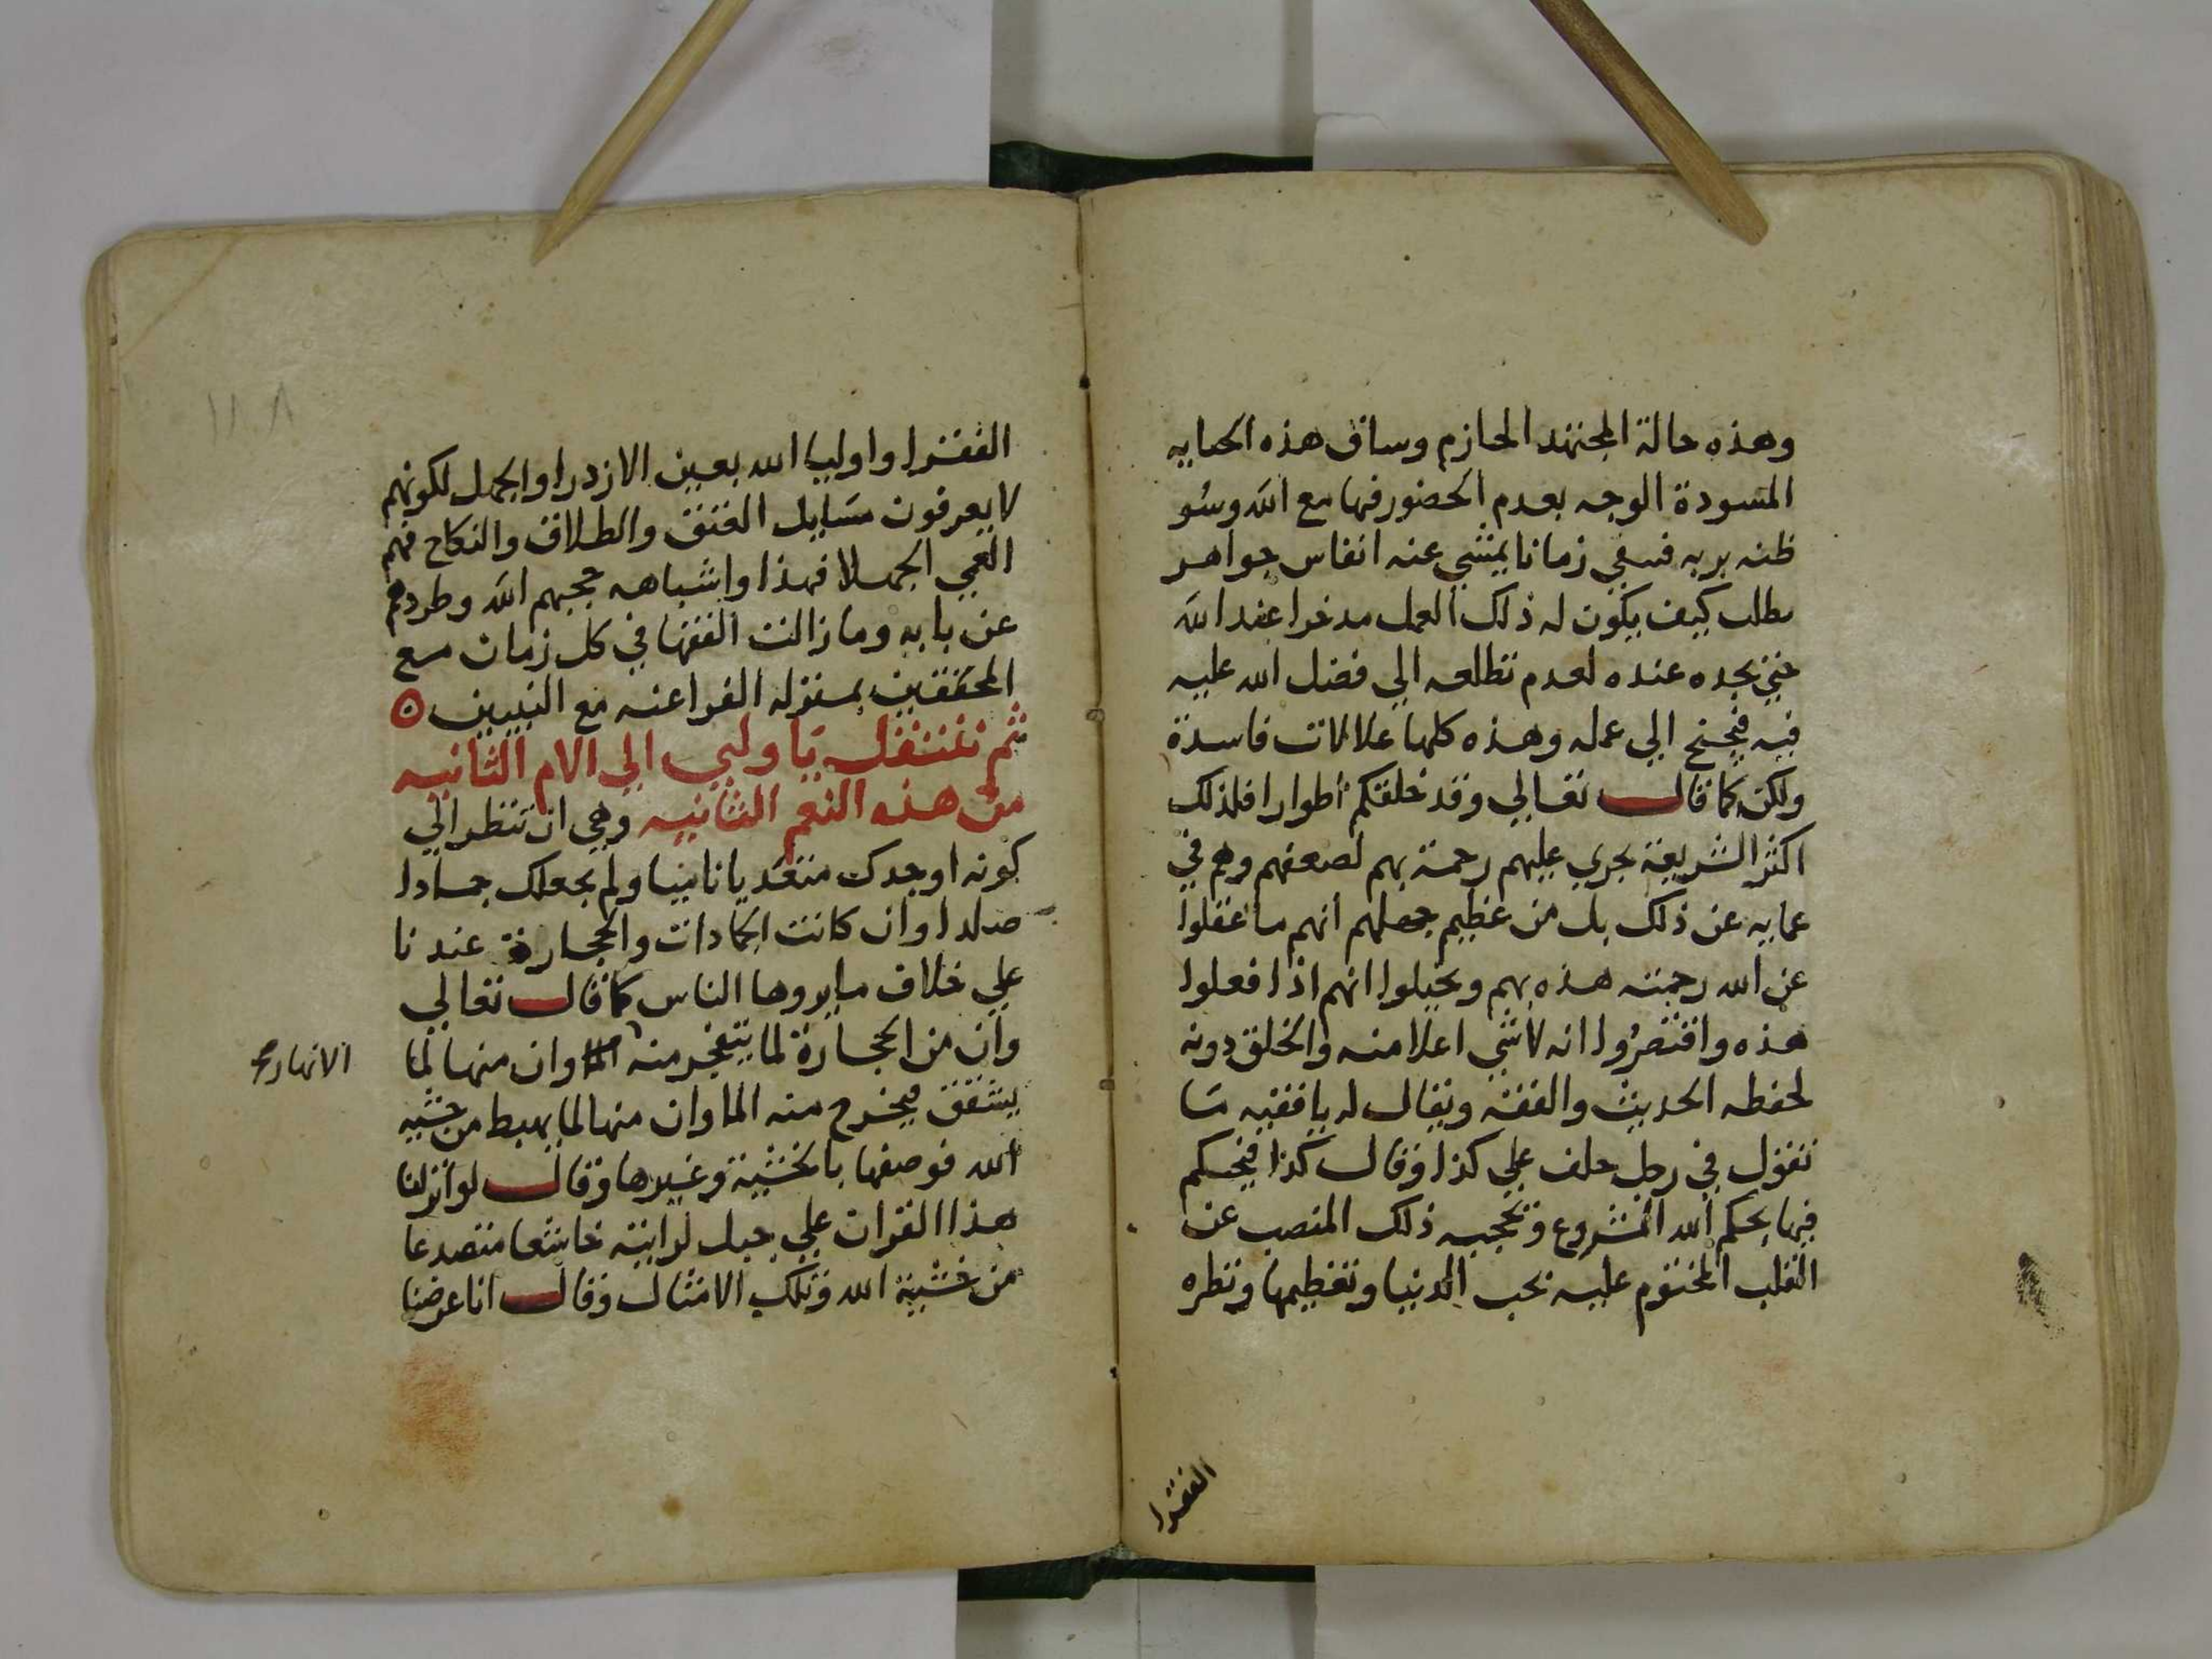 وهذه حالة المجتهد الحازم وساق هذه الحبايه
المسودة الوجه بعدم الحضور فيها مع الله وسُو
ظنه بربه فسقى زمانا يمشي عنه انفاس جواهر
بطلب كيف يكون له ذلك العمل مدخرا عند الله
حتى يجده عنده لعدم تطلعه الي فضل الله عليه
فيه فيجنح الي عمله وهذه كلها علالات فاسدة
ولكن كما قال تعالي وقد خلقكم اطوارا فلذلك
اكثر الشريعة يجري عليهم رحمة بهم لضعفهم وهم في
عمايه عن ذلك بل من عظيم جهلهم انهم ما غفلوا
عن الله رحمته هذه بهم وتخيلوا انهم اذا فعلوا
هذه واقتصرُوا انه لاشي اعلا منه والخلق دونه
لحفظه الحديث والفقه ويقال له يا فقيه مَا
تقول في رجل حلف علي كذا وقال كذا فيحكم
فيها بحكم الله المشروع وتحجبه ذلك المنصب عن
القلب المختوم عليه بحب الدنيا وتعظيمها ونظره
الفقرا
١٨٠٨
الفقرا واوليا الله بعين الازدرا والجهل لكونهم
لا يعرفون مسَايل العتق والطلاق والنكاح فهم
العمي الجهلا فهذا واشباهه حجبهم الله وطردهم
عن بابه وما زالت الفقها في كل زمان مع
المحققين بمنزلة الفراعنه مع النبيين ه
ثم نتنقل يا ولي الي الام الثانيه
من هذه النعم الثانيه وهي ان تنظر الي
كونه اوجدك متغديا ناميا ولم يجعلك جمادا
صلدا وان كانت الجمادات والحجارة عندنا
علي خلاف ما يروها الناس كما قال تعالي
وان من الحجارة لما يتفجر منه الما وان منها لما
الانهار صح
يشقق فيخرج منه الما وان منها لما يهبط من خشيه
الله فوصفها بالخشية وغيرها وقال لو انزلنا
هذا القران علي جبل لرايته خاشعا متصدعا
من خشية الله وتلك الامثال وقال انا عرضنا